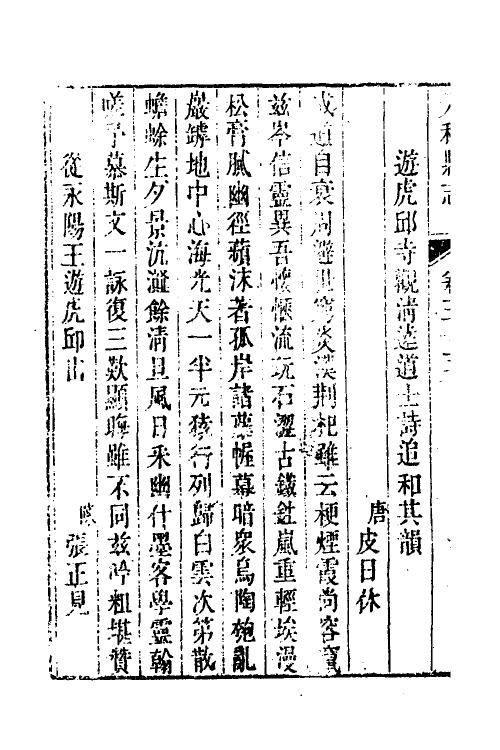 和縣志 卷三十
遊虎邱寺觀淸遠道士詩追和其韻
唐皮日休
成道自衰周避世窮炎漢荆杞雖云梗煙霞尚容竄
茲岑信靈異吾懷愜流玩石澀古鐵鉎嵐重輕埃漫
松膏膩幽徑蘋沫著孤岸諸蘿幄幕暗衆鳥陶匏亂
巖罅地中心海光天一半元猿行列歸白雲次第散
蟾蜍生夕景沆瀣餘清旦風日采幽什墨客學靈翰
嗟予慕斯文一詠復三歎顯晦雖不同茲吟粗堪贊
從永陽王遊虎邱山 陳張正見